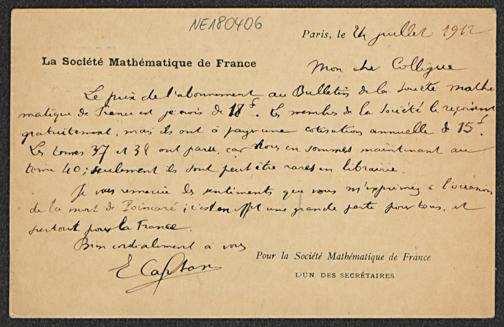 NE180406
Paris, le 24 juillet 1912
La Société Mathématique de France
Mon cher Collègue
Le prix de l'abonnement au Bulletin de la Société mathé
matique de France est je crois de 18f. Les membres de la Société le reçoivent
gratuitement, mais ils ont à payer une cotisation annuelle de 15f.
Les tomes 37 et 38 ont paru, car nous en sommes maintenant au
tome 40; seulement ils sont peut être rares en librairie.
Je vous remercie des sentiments que vous m'exprimez à l'occasion
de la mort de Poincaré; c'est en effet une grande perte pour tous, et
surtout pour la France.
Bien cordialement à vous
E Cartan
Pour la Société Mathématique de France
L'UN DES SECRÉTAIRES